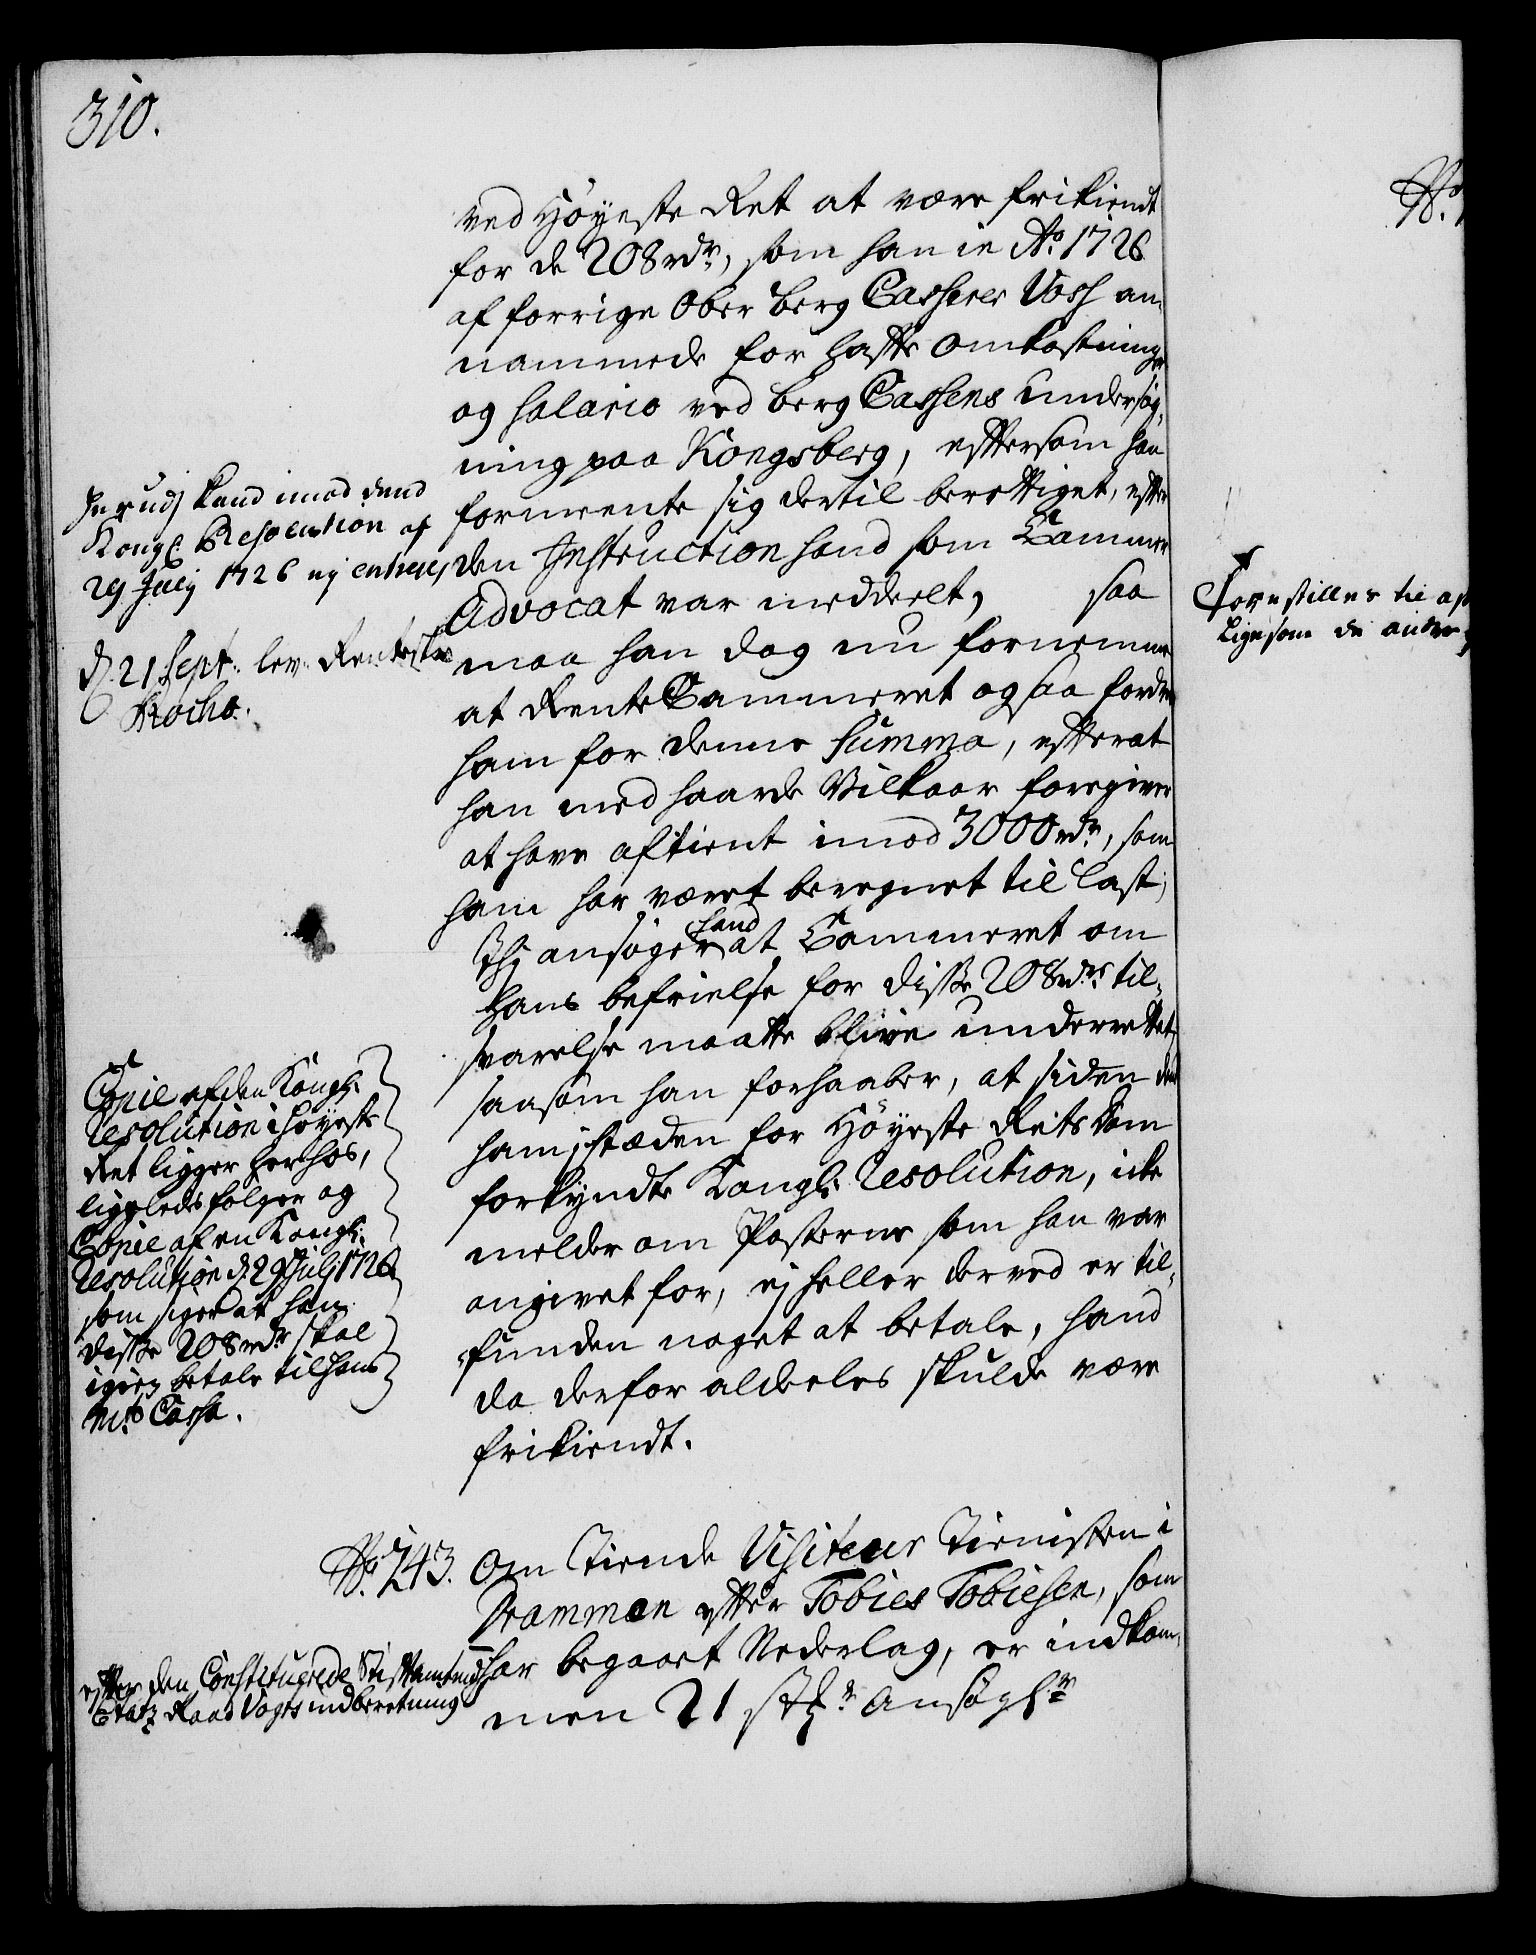 310.
ved Höyeste Ret at være frikiendt
for de 208 rdr, som han in Ao 1726
af forrige Ober Berg Casserer Voss an-
nammede for hafte omkostninger
og Salario ved Berg Cassens undersög-
ning paa Kongsberg, eftersom han
formeente sig dertil berettiget, efter
den Instruction hand som Cammer
Advocat var meddeelt, saa
maa han dog nu fornemme
at RenteCammeret ogsaa fordrer
ham for denne Summa, efterat
han med haarde Vilkaar foregiver
at have aftient imod 3000 rdr, som
ham har været beregnet til last;
Thj ansøger hand at Cammeret om
hans befrielse for disse 208 rdrs til-
svarelse maatte blive underrettet,
saasom han forhaaber, at siden den
ham i stæden for Höyeste Rets dom
forkyndte Kongl: Resolution, icke
melder om Posterne som han var
angivet for, ej heller derved er til-
funden noget at betale, hand
da derfor aldeeles skulde være
frikiendt.
kand imod dend
Kongl: Resolution af
29 July 1726 ej
d. 21 Sept. lev.
Copie af den Kongl:
Resolution i Höyeste
Ret ligger herhos,
ligeledes fölger og
Copie af en Kongl:
Resolution d. 29 Julij 1726
som siger at han
disse 208 rdr skal
igien betale til Hans
Mts Cassa.
No 243. Om Tiende Visiteur Tienisten i
Drammen efter Tobies Tobiesen, som
har begaaet Nederlag, er indkom-
men 21 stkr Ansøgr
efter den Constituerede Stiftamtmd
Etatz Raad Vogts indberetning
No
Forestilles til
ligesom de andre